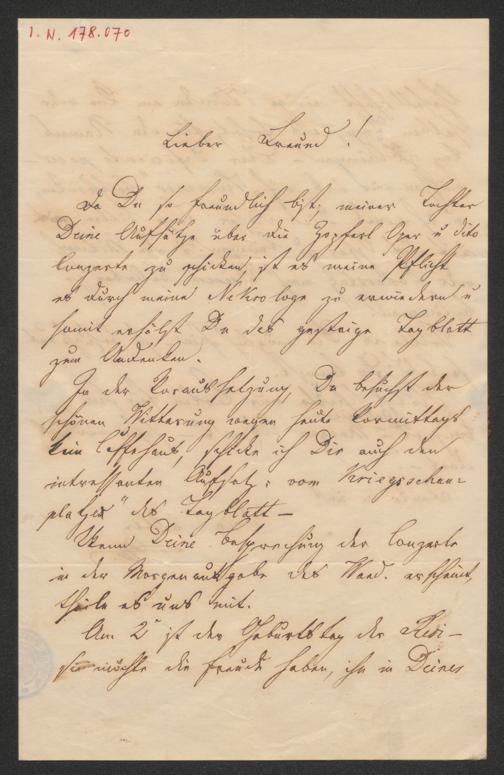 I. N. 178.070
Lieber Freund!
Da Du so freundlich bist, meiner Tochter
Deine Aufsätze über die Hopferl Oper u dito
Conzerte zu schicken, ist es meine Pflicht
es durch meine Nekrologe zu erwiedern u
somit erhälst Du das gestrige Tagblatt
zum Andenken.
In der Voraussetzung, Du besuchst der
schönen Witterung wegen heute Vormittags
kein Caffehaus, schicke ich Dir auch den
interessanten Aufsatz: vom Kriegsschau-
platze" des Tagblatt –
Wenn Deine Besprechung der Conzerte
in der Morgenausgabe des erscheint,
theile es uns mit.
Am 2 ist der Geburtstag der Resi –
sie möchte die Freude haben, ihn in Deines